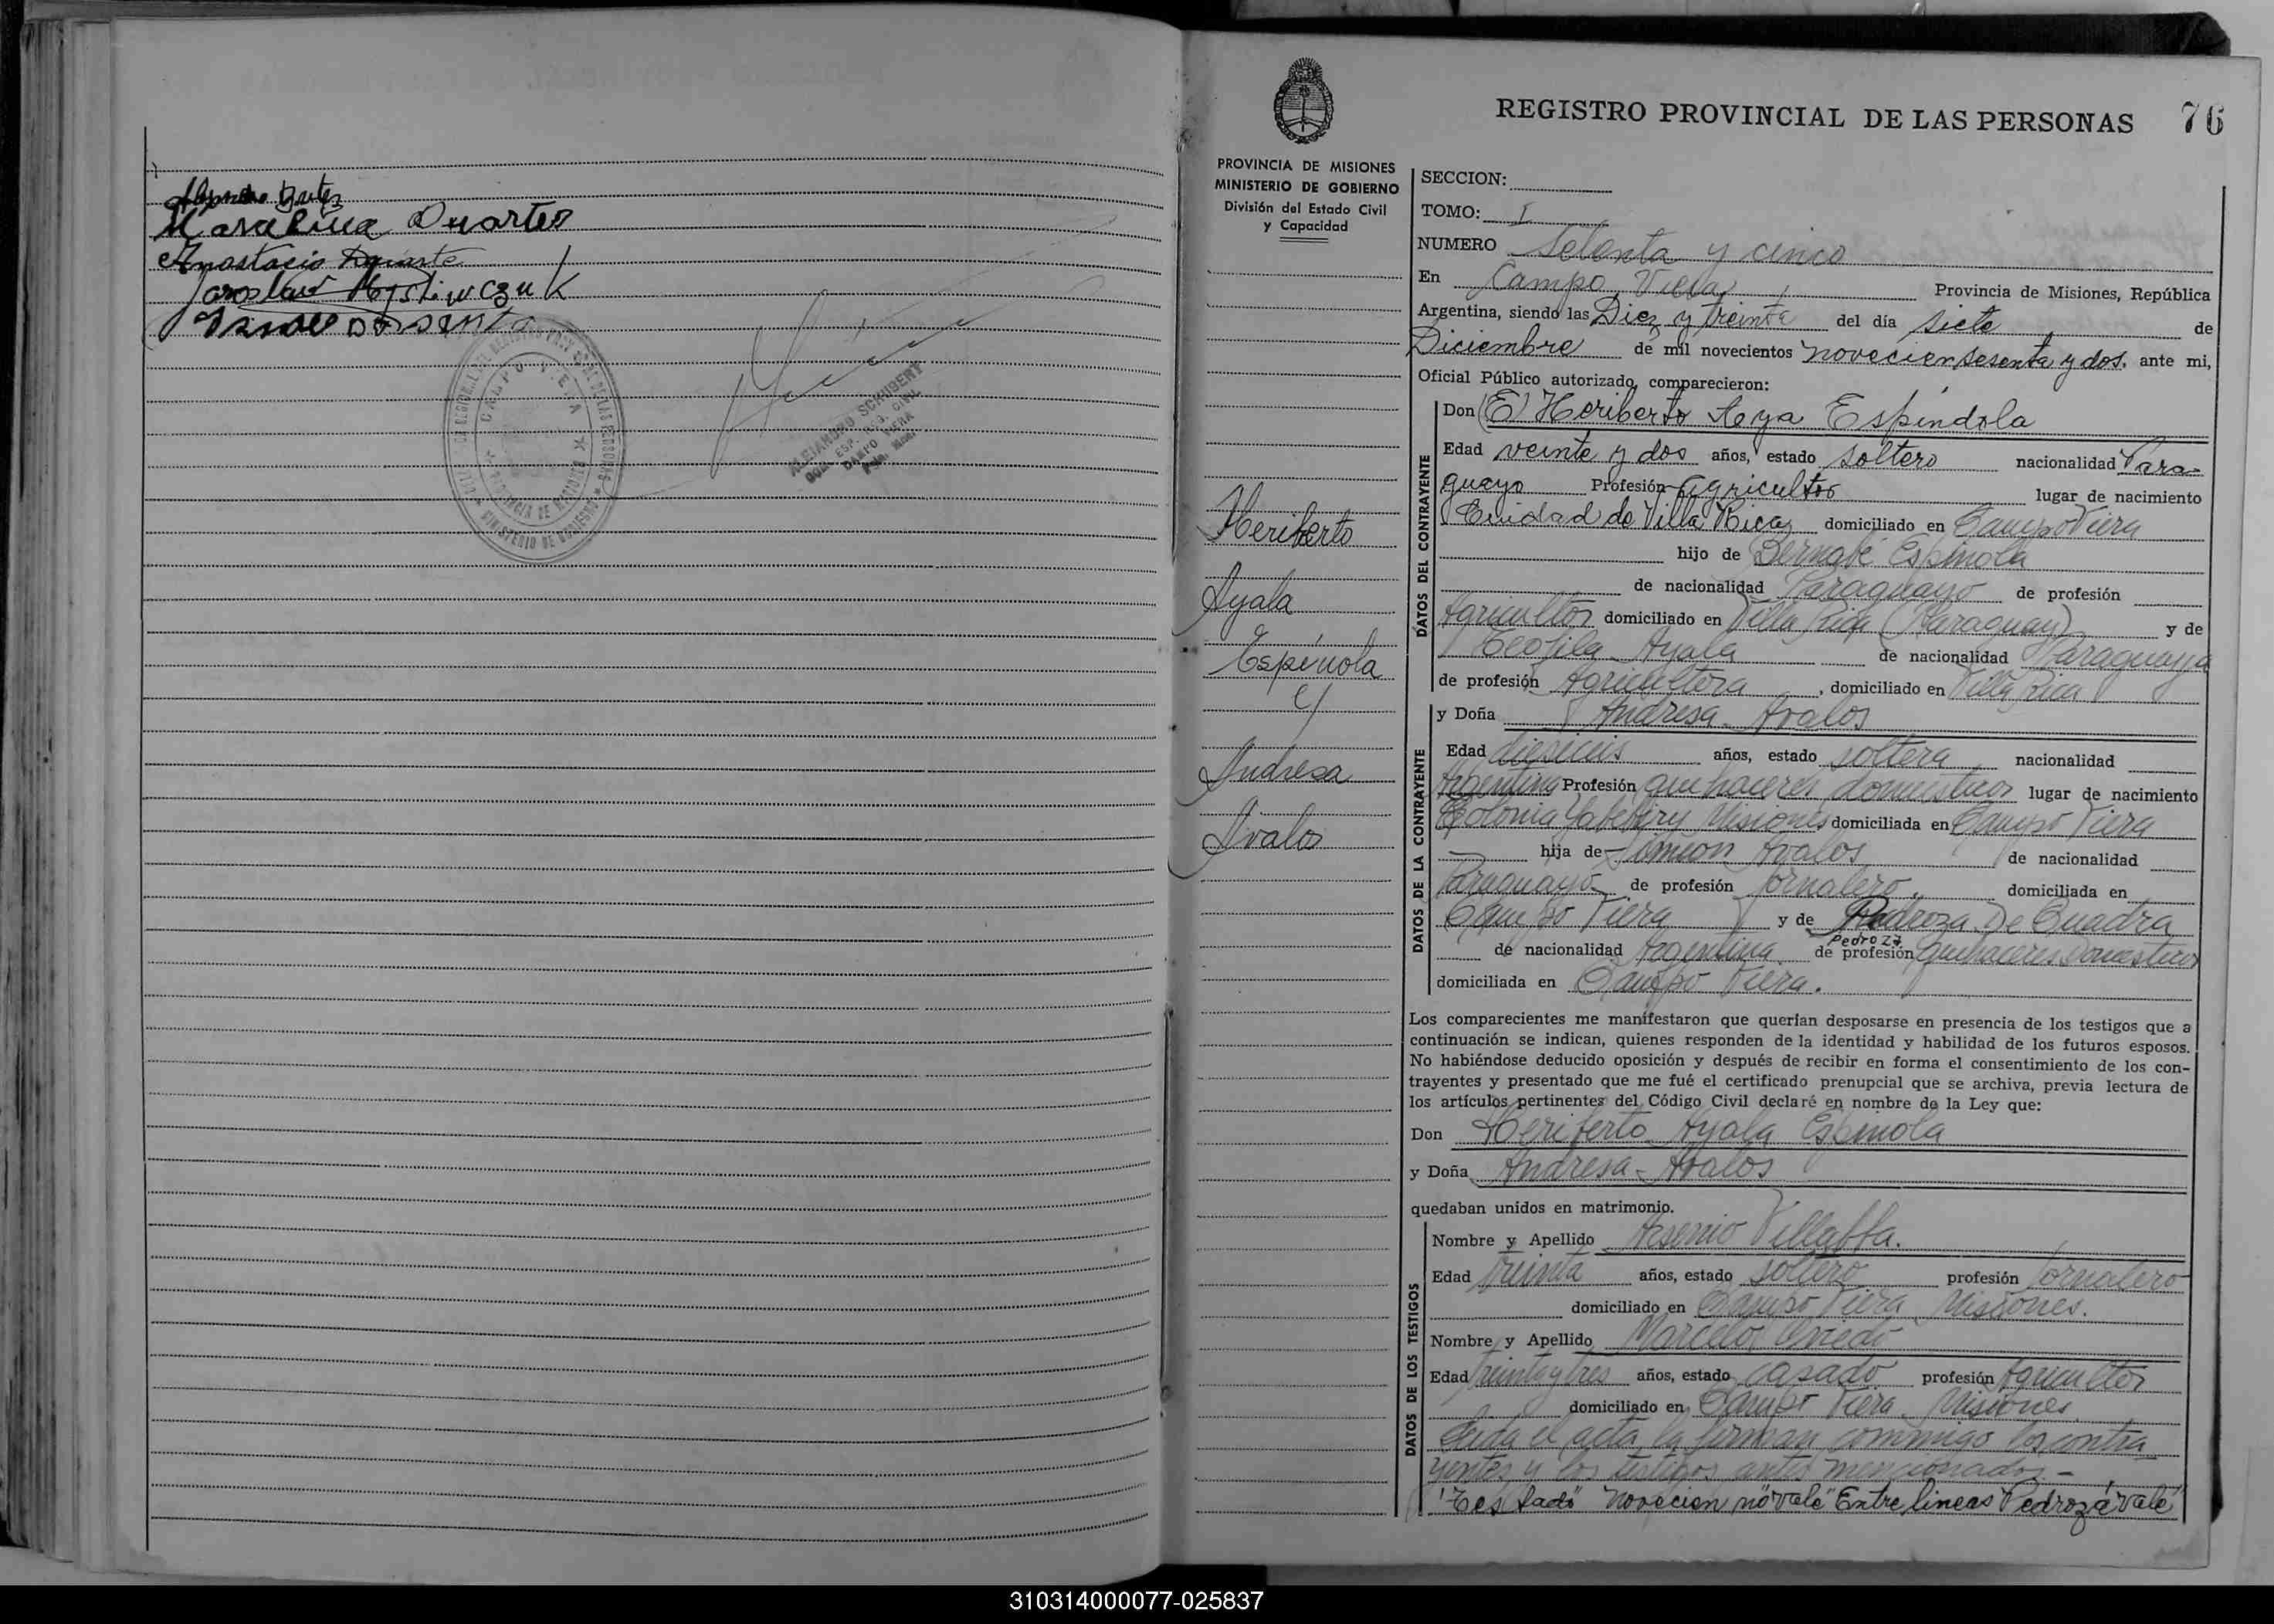 Marcelina Duartes
Anastacio Duarte
Jaroslav
ALEJANDRO SCHUBERT
CAMPO VIERA
REGISTRO PROVINCIAL DE LAS PERSONAS 76
PROVINCIA DE MISIONES
MINISTERIO DE GOBIERNO
División del Estado Civil
y Capacidad
Heriberto
Ayala
Espínola
y
Andresa
Avalos
SECCION:
TOMO: I
NUMERO Setenta y cinco
En Campo Viera, Provincia de Misiones, República
Argentina, siendo las Diez y treinta del día siete de
Diciembre de mil novecientos novecien sesenta y dos, ante mi,
Oficial Público autorizado, comparecieron:
DATOS DEL CONTRAYENTE
Don (E) Heriberto Espíndola
Edad veinte y dos años, estado soltero nacionalidad Para-
guayo Profesión Agricultor lugar de nacimiento
Ciudad de Villa Rica domiciliado en Campo Viera
hijo de Bernabé Espinola
de nacionalidad Paraguayo de profesión
Agricultor domiciliado en Villa Rica (Paraguay) y de
Teofila Ayala de nacionalidad Paraguaya
de profesión Agricultora, domiciliado en Villa Rica
DATOS DE LA CONTRAYENTE
y Doña Andresa Avalos
Edad años, estado soltera nacionalidad
Argentina Profesión quehaceres domesticos lugar de nacimiento
Colonia Yabebiry Misiones domiciliada en Campo Viera
hija de Simion Avalos de nacionalidad
Paraguayo de profesión Jornalero, domiciliada en
Campo Viera y de De Cuadra
Pedroza
de nacionalidad Argentina de profesión quehaceres Domesticos
domiciliada en Campo Viera.
Los comparecientes me manifestaron que querían desposarse en presencia de los testigos que a
continuación se indican, quienes responden de la identidad y habilidad de los futuros esposos.
No habiéndose deducido oposición y después de recibir en forma el consentimiento de los con-
trayentes y presentado que me fué el certificado prenupcial que se archiva, previa lectura de
los artículos pertinentes del Código Civil declaré en nombre de la Ley que:
Don Heriberto Ayala Espinola
y Doña Andresa Avalos
quedaban unidos en matrimonio.
DATOS DE LOS TESTIGOS
Nombre y Apellido Asenio Villalba.
Edad treinta años, estado soltero profesión Jornalero
domiciliado en Campo Viera Misiones.
Nombre y Apellido Marcelo Oviedo
Edad treinta y tres años, estado casado profesión Agricultor
domiciliado en Campo Viera Misiones
Leida el acta la firman commigo los contra
yentes y los testigos antes mencionados.-
"Testado" novecien no vale" Entre lineas Pedroza vale"
310314000077-025837